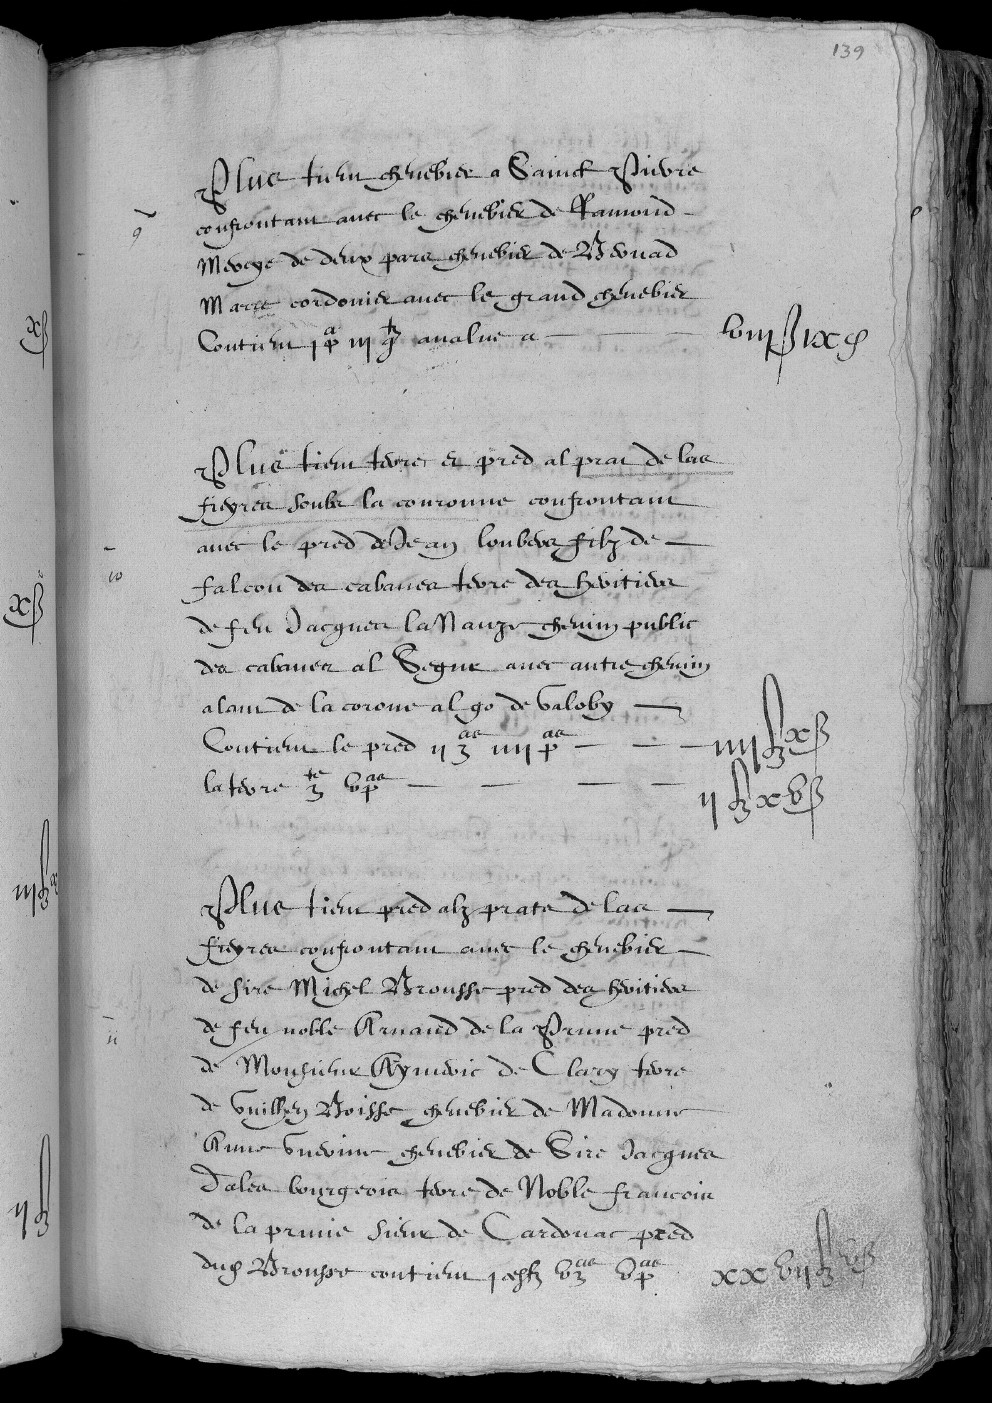 139
Plus tient chenebier a Sainct Pierre
confrontant avec le chenebier de Ramond
9
de deux pars chenebier de Bernad
Marre cordonier avec le grand chenebier
Contient j p iij avalue a
Plus tient terre et pred al prat de las
fieyres soubz la couronne confrontant
avec le pred de Jean loubers filz de
10
falcou des cabanes terre des heritiers
de feu Jacques la Nauze chemin public
des cabanes al Segur avec autre chemin
alant de la corone al go de Valoby
Contient le pred ij iiij p iiij x
la terre v p ij xv
Plus tient pred alz pratz de las
fieyres confrontant avec le chenebier
de sire Michel Brousse pred des heritiers
11
de feu noble Arnaud de la Prune pred
de Monsieur Aymeric de Clary terre
de Guilhen Boisse chenebier de Madonne
Anne Guerine chenebier de Sire Jacques
Dales bourgeois terre de Noble francois
de la prunie sieur de Cardonac pred
dud Brousse contient j v v p xxvij